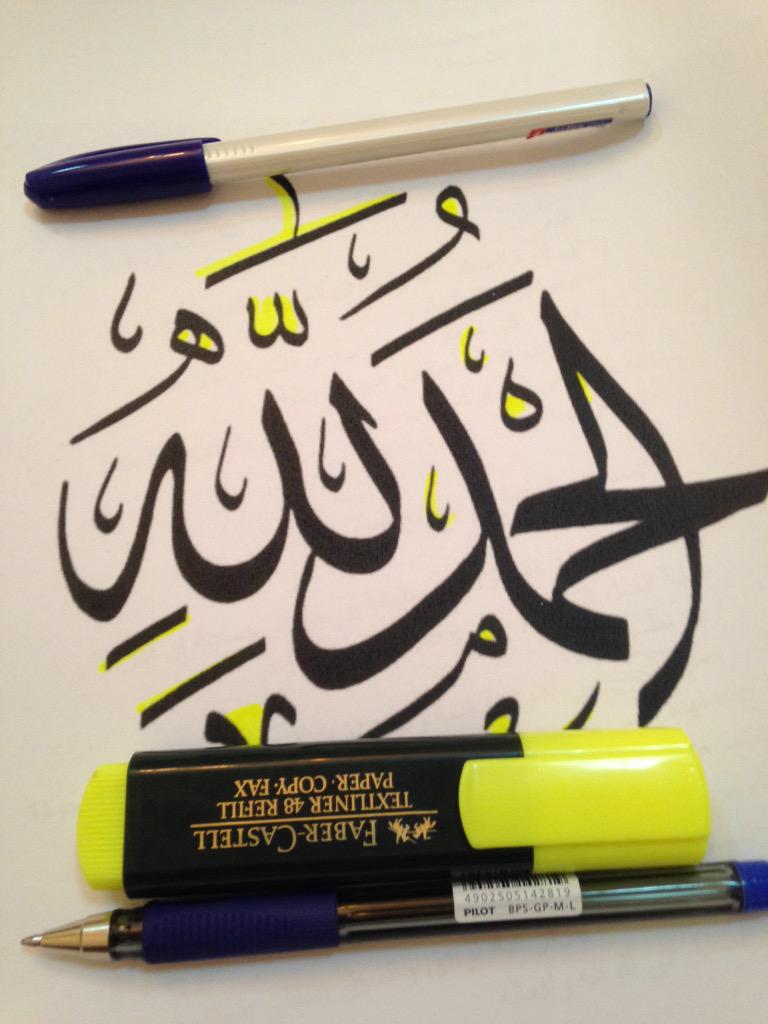 الحمد لله
FABER-CASTELL
TEXTLINER 48 REFILL
PAPER·COPY·FAX
4902505142819
PILOT BPS-GP-M-L